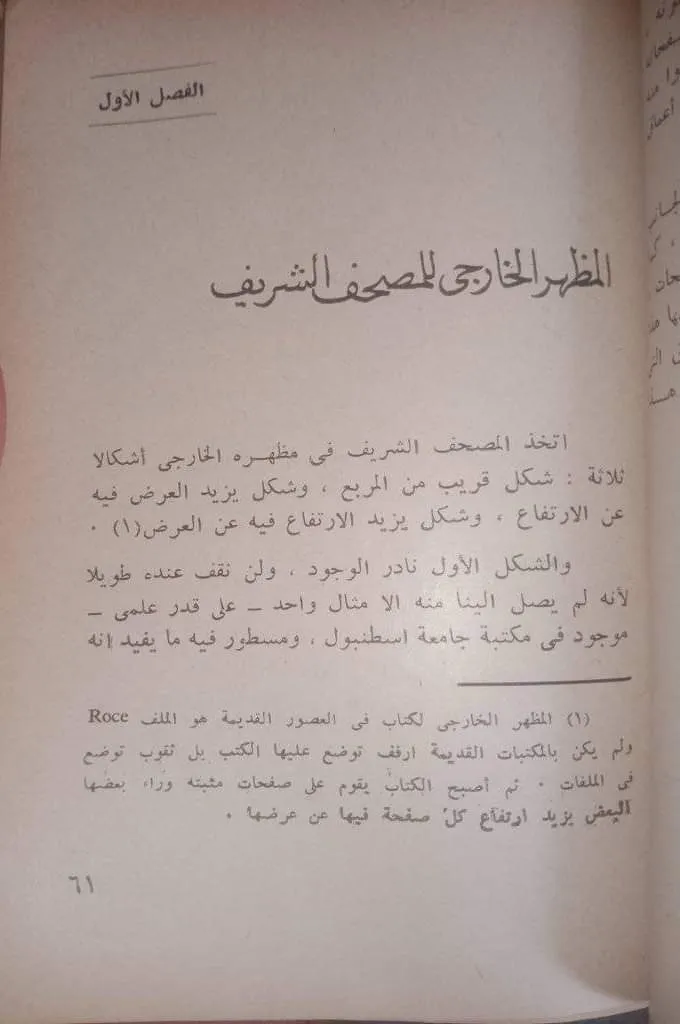 الفصل الأول
المظهر الخارجى للمصحف الشريف
اتخذ المصحف الشريف فى مظهـره الخارجى أشكالا
ثلاثة : شكل قريب من المربع ، وشكل يزيد العرض فيه
عن الارتفاع ، وشكل يزيد الارتفاع فيه عن العرض(١) ٠
والشكل الأول نادر الوجود ، ولن نقف عنده طويلا
لأنه لم يصل الينا منه الا مثال واحد ــ على قدر علمى ــ
موجود فى مكتبة جامعة اسطنبول ، ومسطور فيه ما يفيد انه
(١) المظهر الخارجى لكتاب فى العصور القديمة هو الملف Roce
ولم يكن بالمكتبات القديمة ارفف توضع عليها الكتب بل ثقوب توضع
فى الملفات ٠ ثم أصبح الكتاب يقوم على صفحات مثبته وراء بعضها
البعض يزيد ارتفاع كل صفحة فيها عن عرضها ٠
٦١